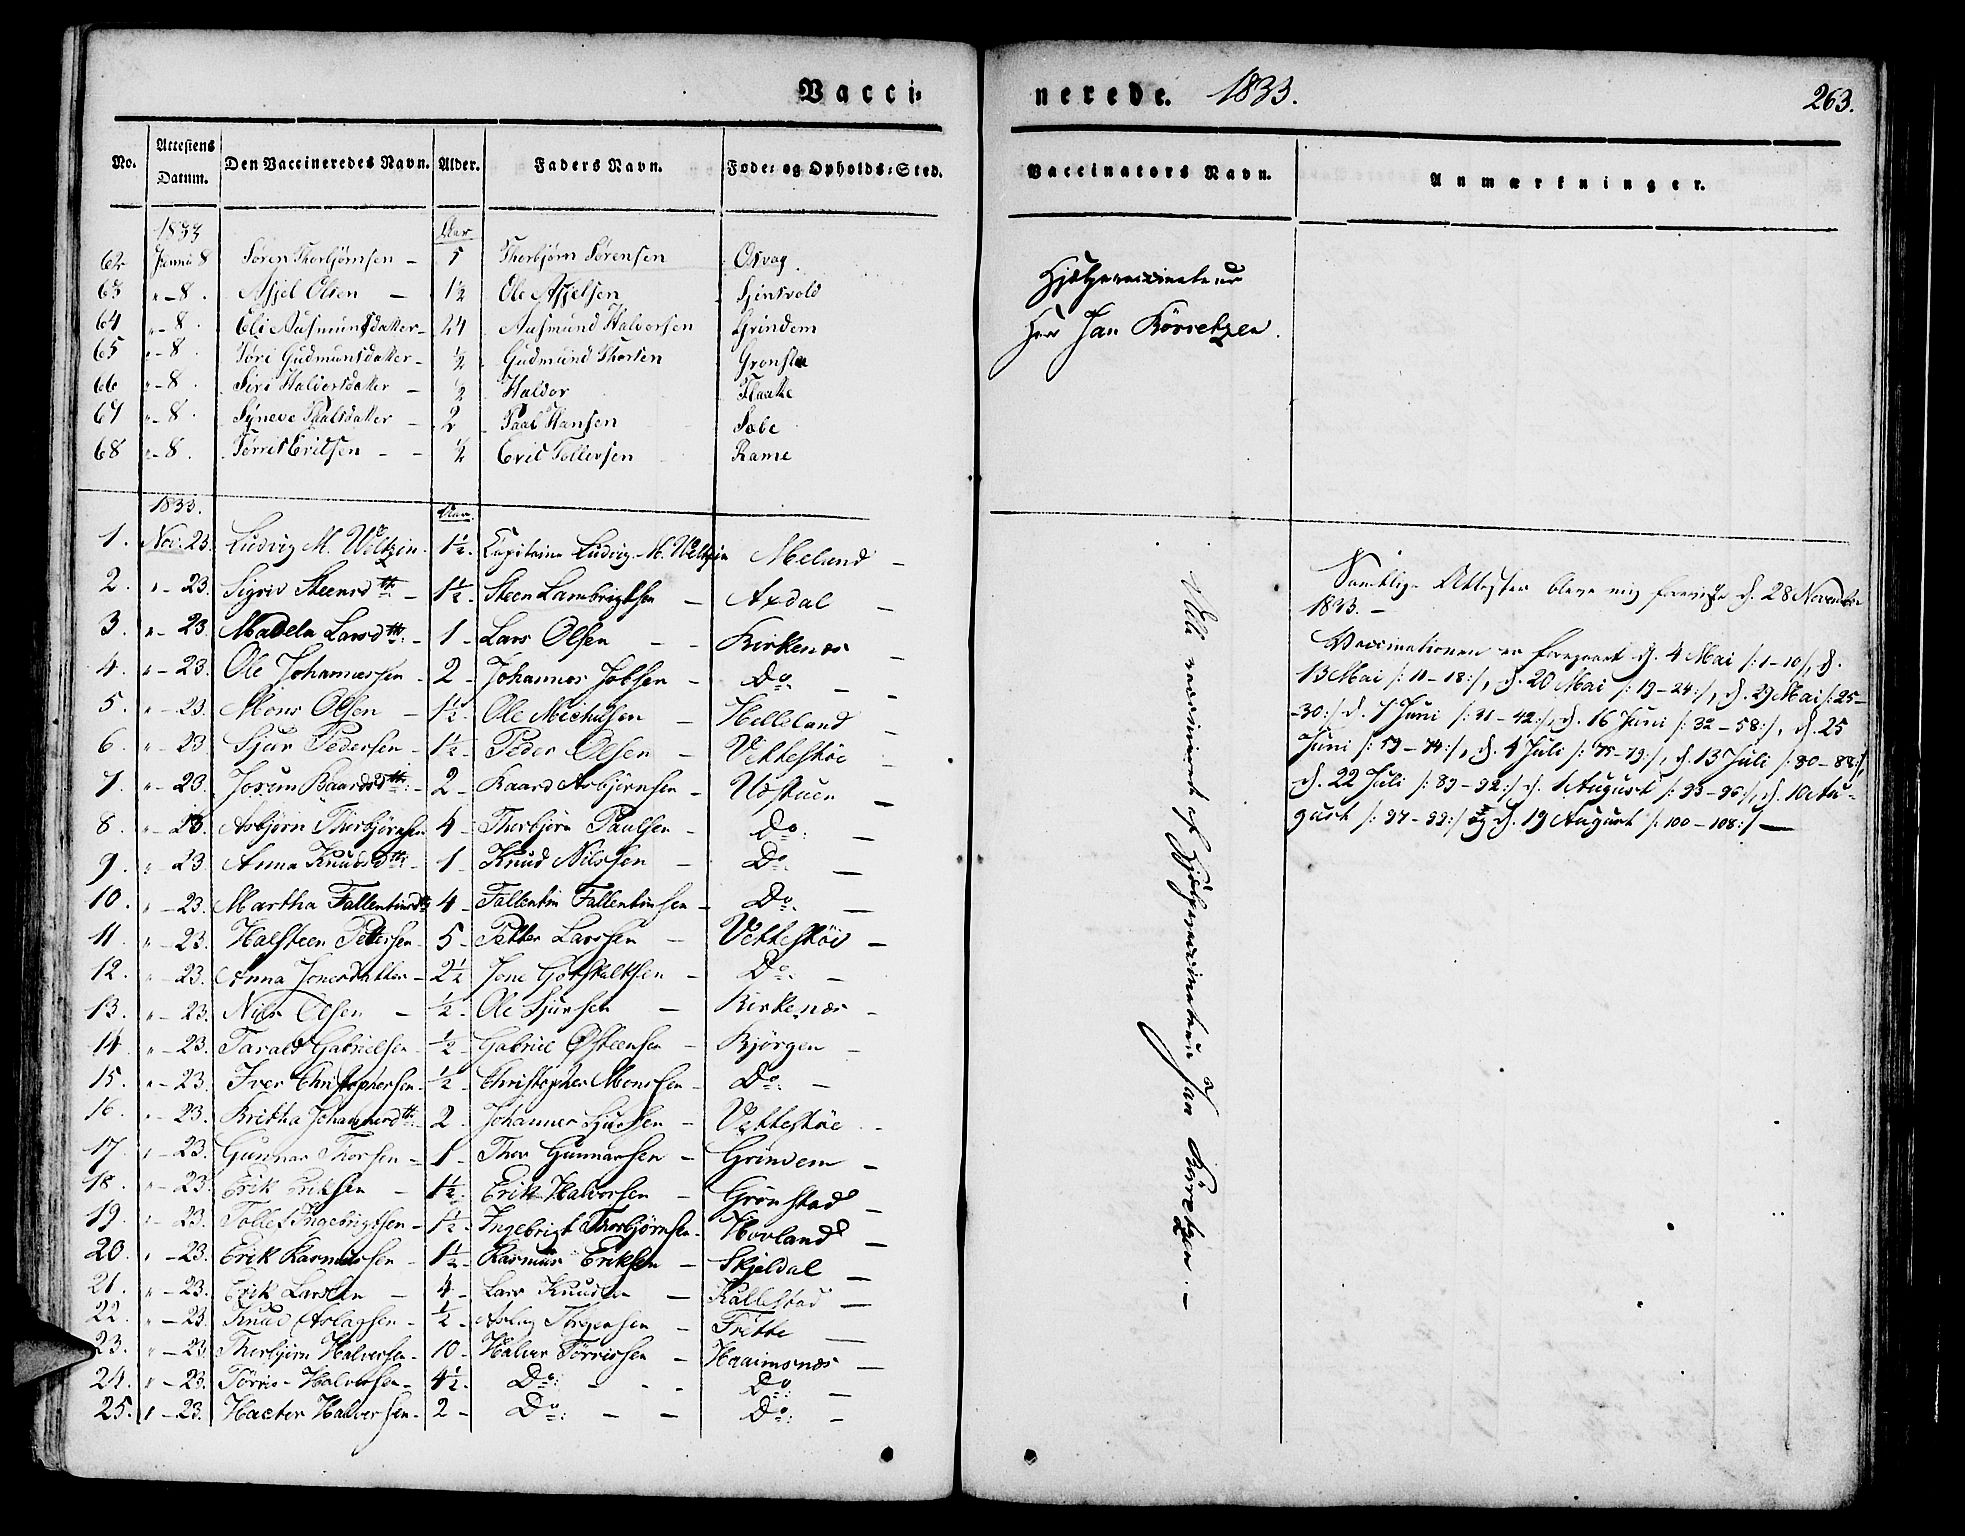 Vacci-
nerede. 1833.
263.
No. Attestens Datum. Den Vaccineredes Navn. Alder. Faders Navn. Føde- og Opholds-Sted.
Vaccinators Navn. Anmærkninger.
1833 Aar
62 Januar 8 Søren Thorbjørnsen - 5 Thorbjørn Sørensen Osvog
63 " - 8. Assjel Olsen - 1½ Ole Asselsen
64 " - 8. Eli Aasmunsdatter - 24 Aasmund Halvorsen Grindem
65 " - 8. Gudmunsdatter - ½ Gudmund Thorsen
66 " - 8. Siri Halvorsdatter - ½ Haldor Flaatte
67 " - 8. Syneve Paalsdatter - 2 Paal Hansen Sæbe
68 " - 8. Tørris Eriksen - - ½ Erik Tollevsen Rame
Hjelpevaccinateur
Herr Jan Körretzen.
1833. Aar.
1. Nov. 23. Ludvig M. Weltzin. 1½. Capitaine Ludvig M. Weltzin Meland -
2. " - 23. Sigrid Steensdtt: - 1½. Steen Lambrigtsen - Axdal -
3. " - 23. Madela Larsdtt: - 1 - Lars Olsen - - Kirkenæs -
4. " - 23. Ole Johannessen - 2 - Johannes Jobsen - Do. - -
5. " - 23. Mons Olsen - 1½. Ole Michelsen - Helleland -
6. " - 23 Sjur Pedersen - 1½ - Peder Olsen - Vetteskôe -
7. " - 23. Jorun Baardsdtt: - 2 - Baard Asbjørnsen - Udstuen -
8. " - 23. Asbjørn Thorbjørnsen 4 - Thorbjørn Paulsen - Do: -
9. " - 23 Anna Knudsdtt: 1 - Knud Nilssen - Do. -
10. " - 23. Martha Fallentinsdtt 4 - Fallentin Fallentinsen - Do. -
11. " - 23. Halsteen Pettersen - 5 - Petter Larssen - Vetteskôe -
12. " - 23. Anna Jonesdatter - 2½ Jone Gotskalksen - Do. -
13. " - 23. Nils Olsen - ½ - Ole Sjursen - Kirkenæs -
14 " - 23. Tarald Gabrielsen ½ - Gabriel Østeensen - Bjørgen -
15. " - 23. Iver Christophersen - ½ - Christopher Monssen - Do: -
16. " - 23. Britha Johannesdtt: 2. Johannes Sjursen - Vetteskôe -
17. " - 23. Gunnar Thorsen - 1 - Thor Gunnarsen - Grindem -
18. " - 23. Erik Eriksen - 1½. Erik Halvorsen - Grönstad -
19. " - 23. Tollef Ingebrigtsen - 1½ - Ingebrigt Thorbjørnsen - Hovland -
20. " - 23. Erik Rasmussen - 1½ - Rasmus Eriksen - Skjeldal -
21. " - 23. Erik Larsen - 4 - Lars Knudsen - Kallestad -
22. " - 23. Knud Aslagsen - ½ - Aslag Torgersen - Fritte -
23. " - 23. Thorbjørn Halvorsen - 10 - Halvor Tørrissen - Haaimsnæs -
24. " - 23. Tørris Halvorsen - 4½. Do: - - - Do: -
25. " - 23. Halvorsen - 2 - Do: - - Do: -
Alle vaccineret af Hjælpevaccinateur Jan Körretzen. -
Samtlige Attester bleve mig foreviste d. 28 November
1833. -
Vaccinationen er foregaaet d. 4 Mai /: 1-10 /, d.
13 Mai /: 11-18:/, d. 20 Mai /: 19-24:/, d. 29 Mai /: 25-
-30:/ d. 1 Juni /: 31-42:/, d. 16 Juni /: 32-58:/, d. 25
Juni /: 59-74:/, d. 4 Juli /: 75-79:/, d. 13 Juli /: 80-88:/,
d. 22 Juli /: 89-92:/ d. 1 August /: 93-96:/, d. 10 Au-
gust /: 97-99:/ og d. 19 August /: 100-108:/ -